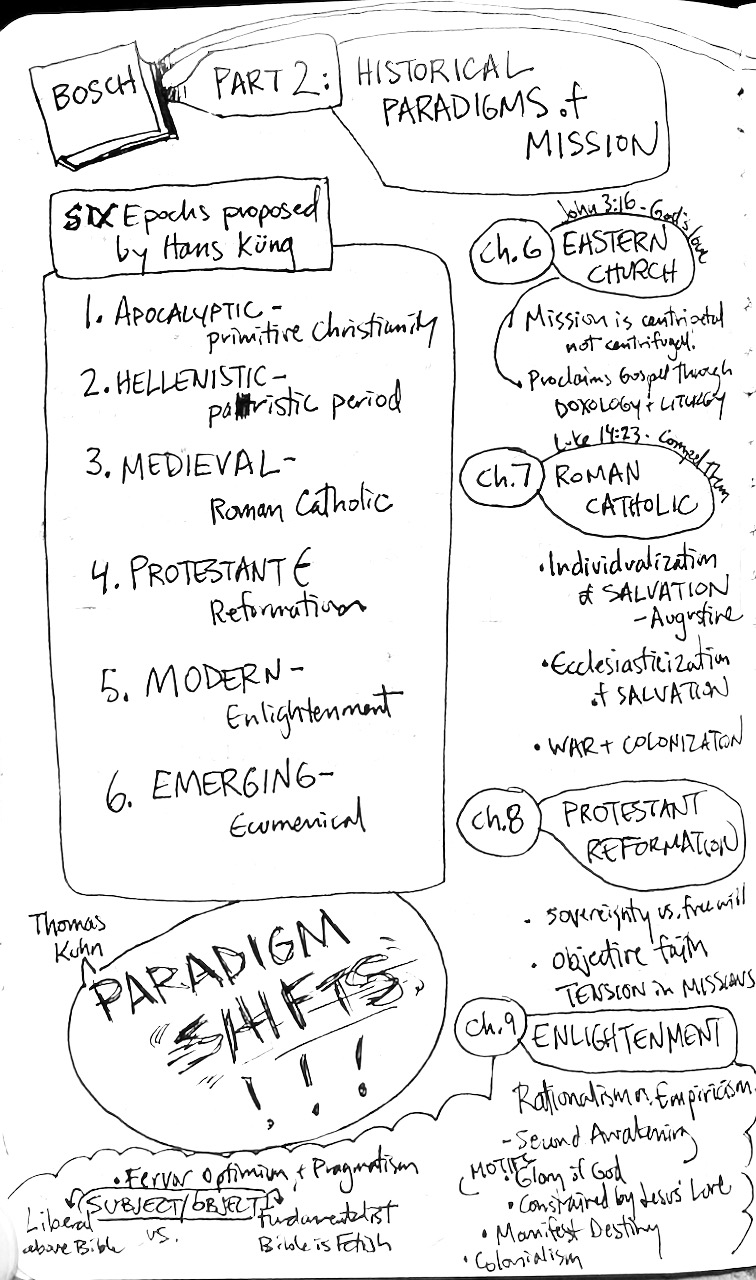 BOSCH
PART 2:
HISTORICAL
PARADIGMS of
MISSION
SIX Epochs proposed
by Hans Küng
1. APOCALYPTIC-
primitive Christianity
2. HELLENISTIC-
patristic period
3. MEDIEVAL-
Roman Catholic
4. PROTESTANT
Reformation
5. MODERN-
Enlightenment
6. EMERGING-
Ecumenical
Thomas
Kuhn
PARADIGM
SHIFTS
! ! !
John 3:16 - God's love
Ch.6
EASTERN
CHURCH
Mission is centripetal
not centrifugal.
Proclaims Gospel through
DOXOLOGY + LITURGY
Luke 14:23 - Compel Them
Ch.7
ROMAN
CATHOLIC
• Individualization
of SALVATION
- Augustine
• Ecclesiasticization
of SALVATION
• WAR + COLONIZATION
Ch.8
PROTESTANT
REFORMATION
• Sovereignty vs. free will
• Objective faith
TENSION in MISSIONS
Ch.9
ENLIGHTENMENT
Rationalism vs. Empiricism
- Second Awakening
MOTIFS
• Glory of God
• Constrained by Jesus' Love
• Manifest Destiny
• Colonialism
• Fervor Optimism + Pragmatism
SUBJECT/OBJECT
Liberal
above Bible
vs.
Fundamentalist
Bible is Fetish